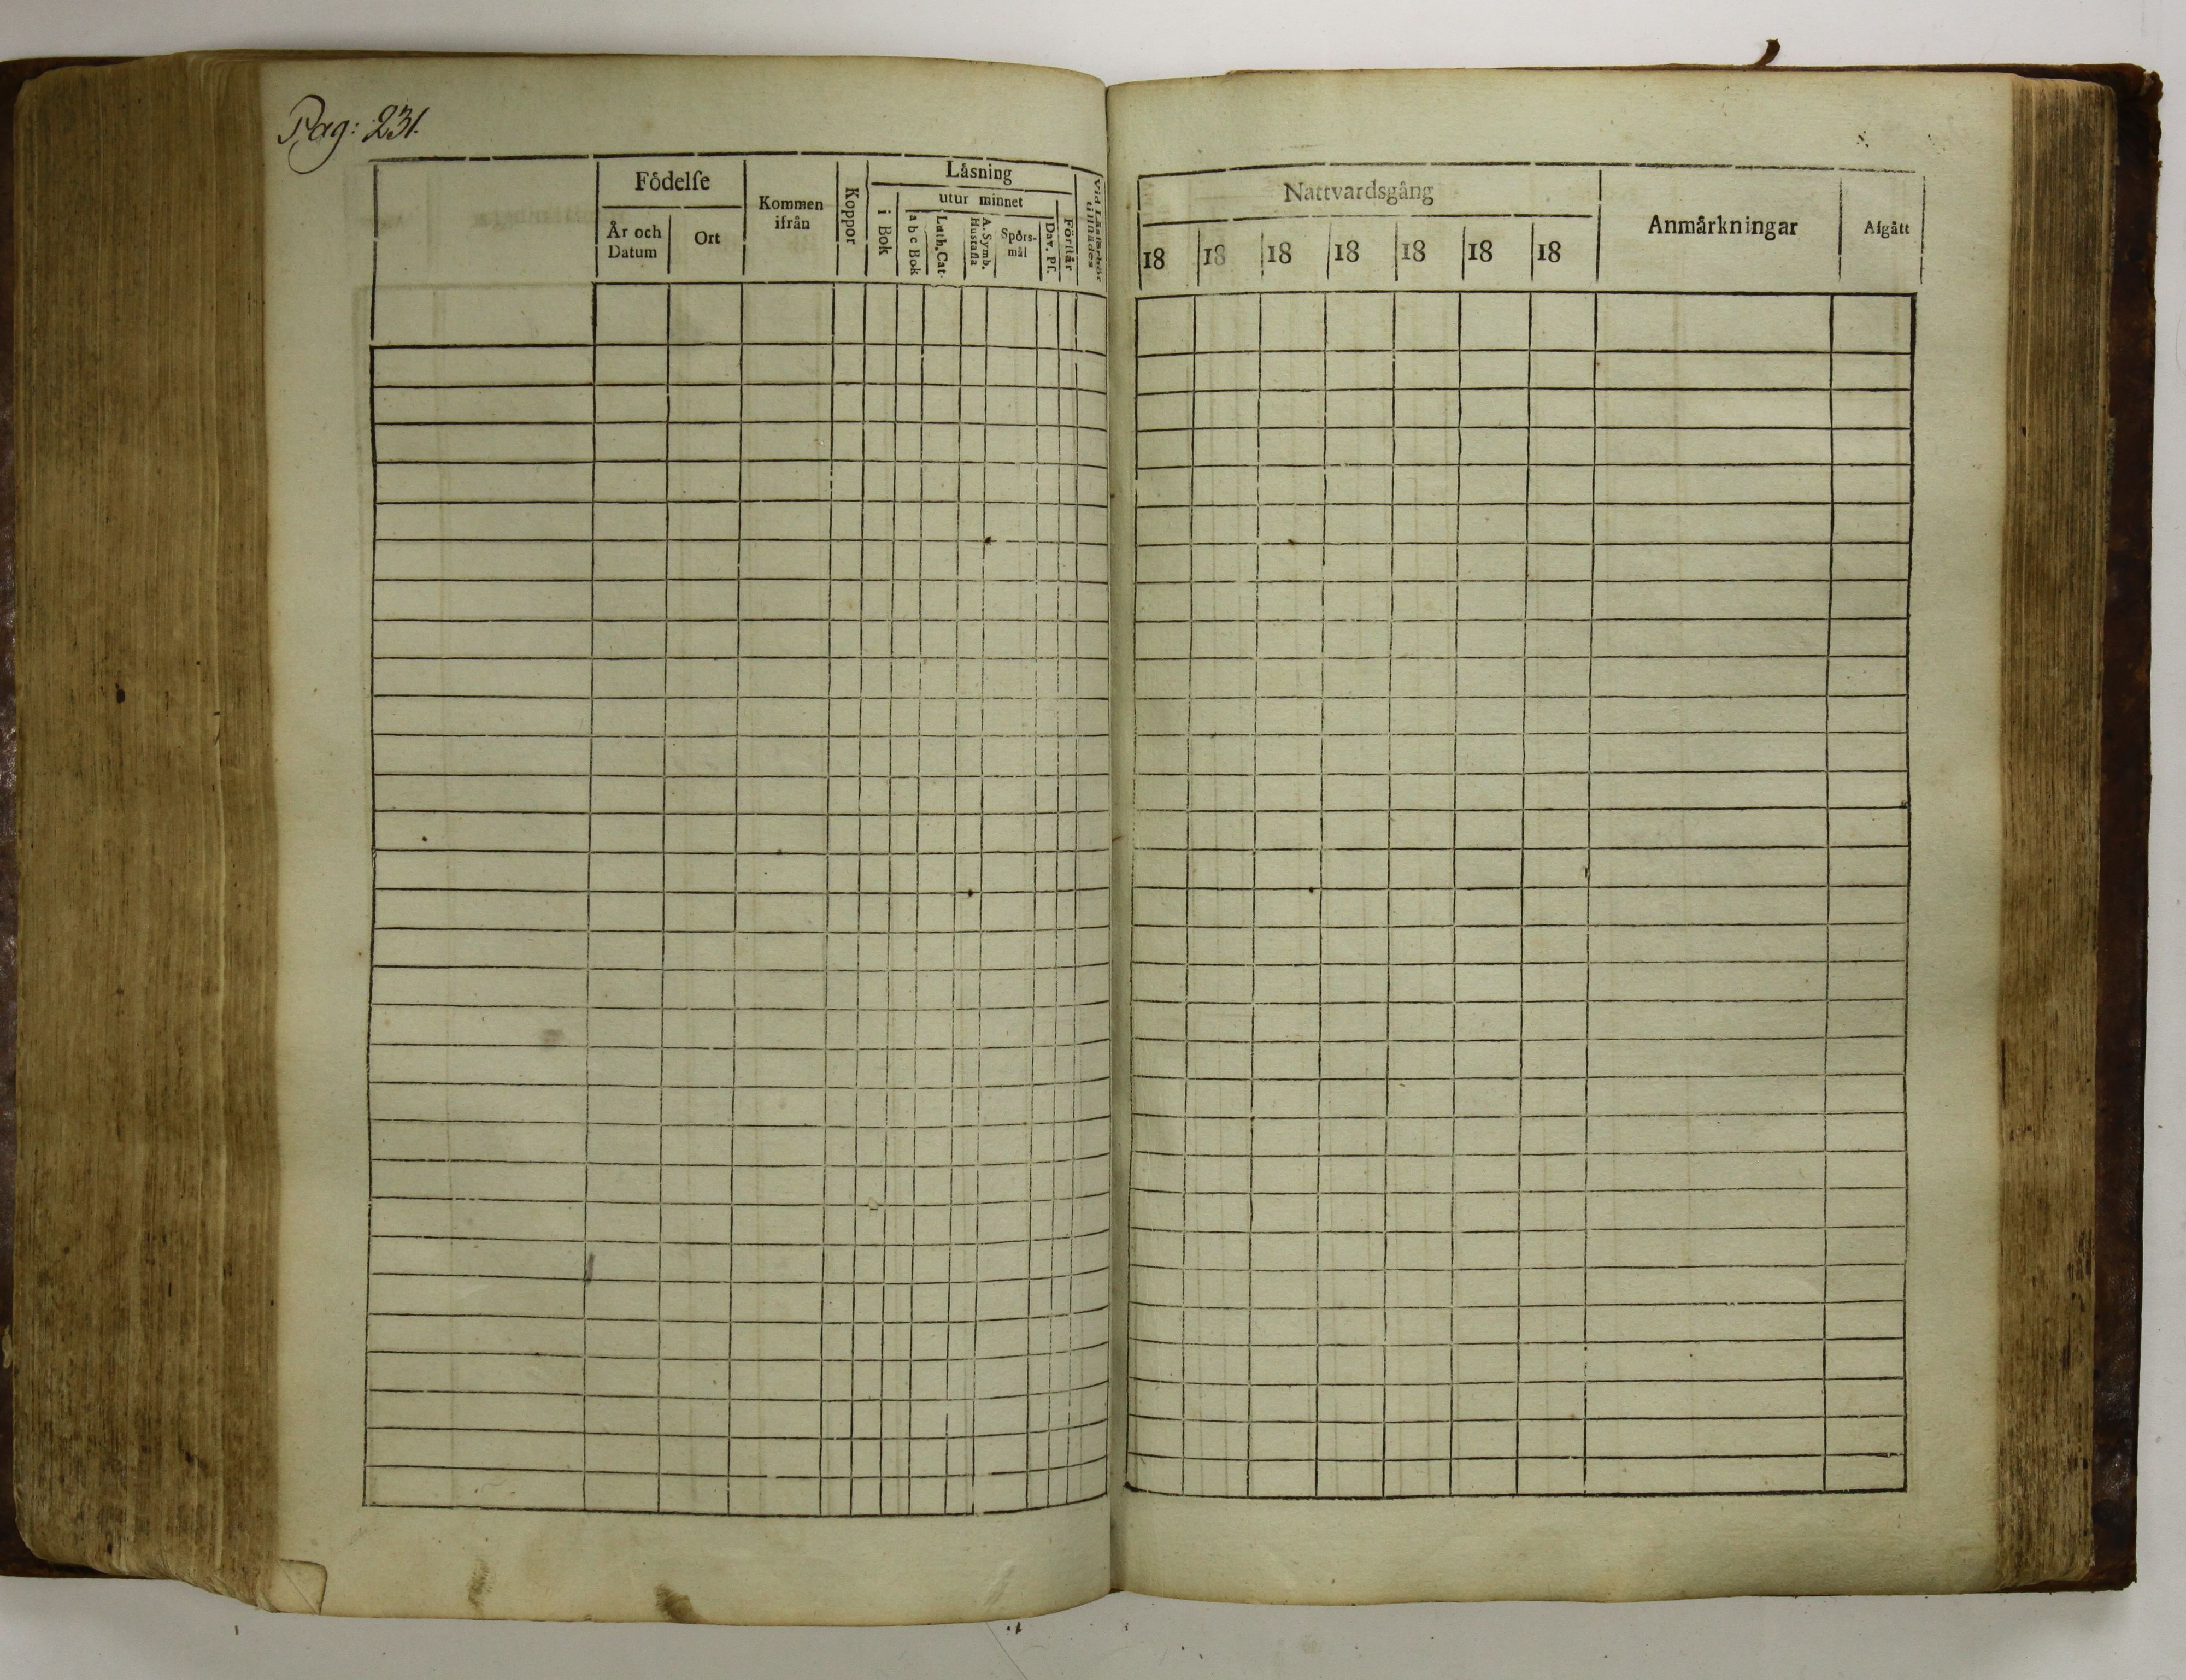 Pag: 231.
Födelſe
År och Datum
Ort
Kommen ifrån
Koppor
Läsning
i Bok
utur minnet
a b c Bok
Luth. Cat.
A. Symb. Hustafla
Spörs-mål
Dav. Pſ.
Förſtår
Nattvardsgång
18 18 18 18 18 18 18
Anmärkningar
Afgått